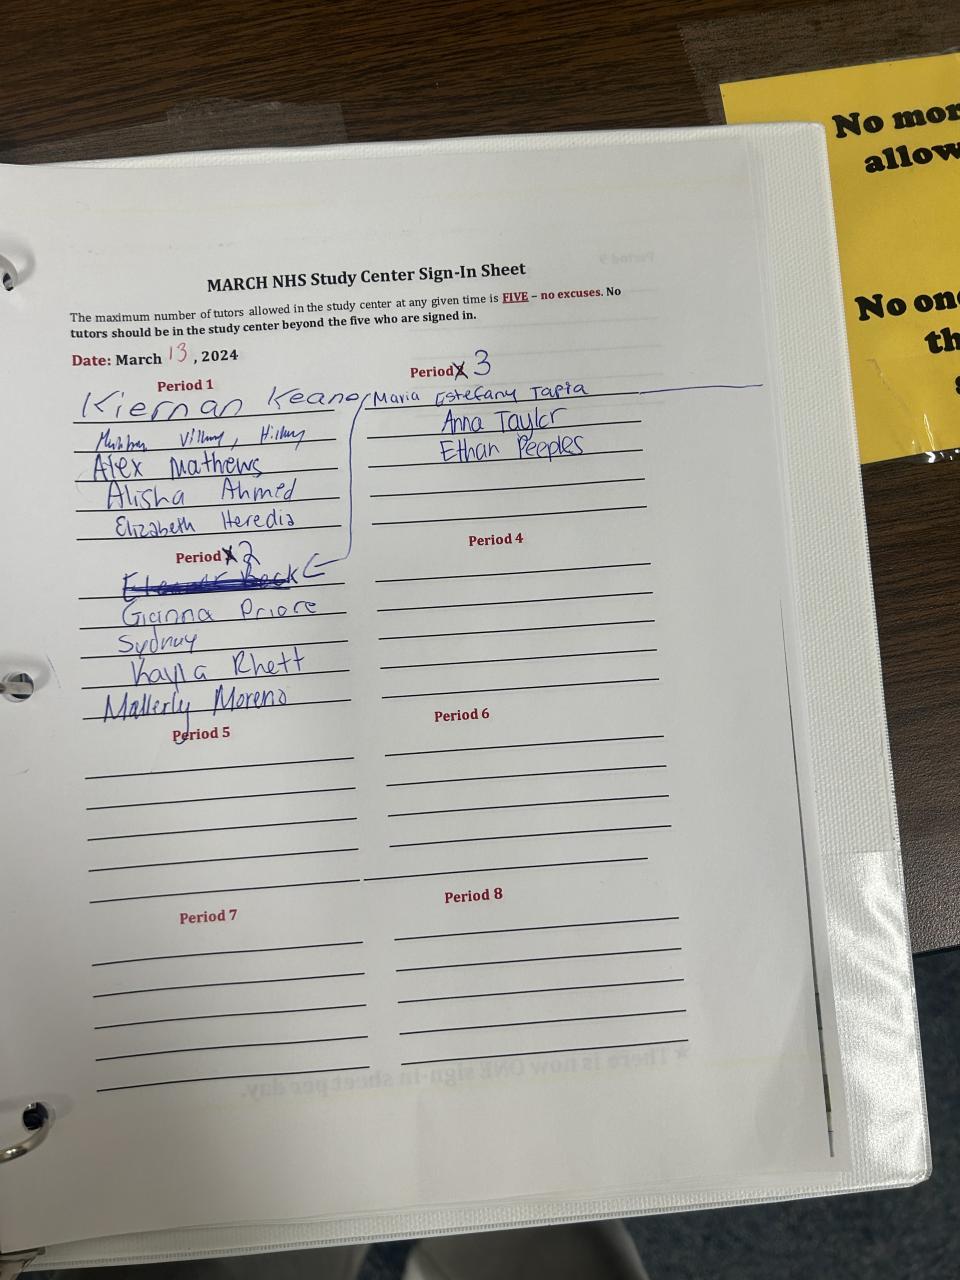 MARCH NHS Study Center Sign-In Sheet
The maximum number of tutors allowed in the study center at any given time is FIVE – no excuses. No
tutors should be in the study center beyond the five who are signed in.
Date: March 13, 2024
Period 1
Kiernan Keane
Hillary
Alex Mathews
Alisha Ahmed
Elizabeth Heredia
Period 2
Gianna Priore
Sydney
Kayla Rhett
Mallerly Moreno
Period 3
Maria Estefany Tapia
Anna Taylor
Ethan Peeples
Period 4
Period 5
Period 6
Period 7
Period 8
★ There is now ONE sign-in sheet per day.
Period 9
No mor
allow
No one
th